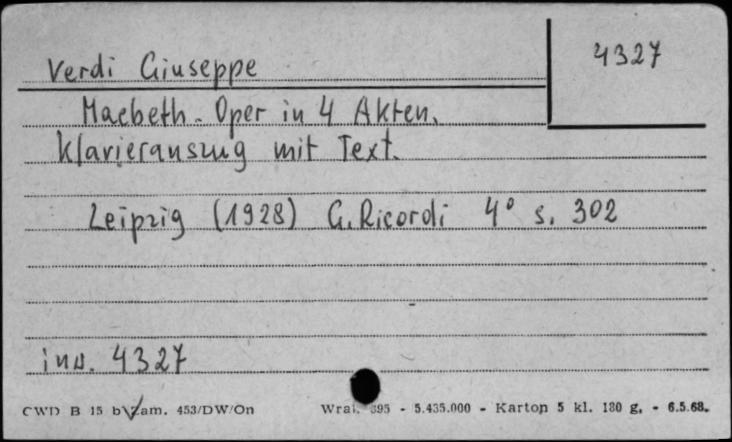 4327
Verdi Giuseppe
Macbeth. Oper in 4 Akten.
Klavierauszug mit Text.
Leipzig (1928) G. Ricordi 4° s. 302
inw. 4327
CWD B 15 b Zam. 453/DW/On 395 - 5.435.000 - Kartop 5 kl. 180 g. - 6.5.68.